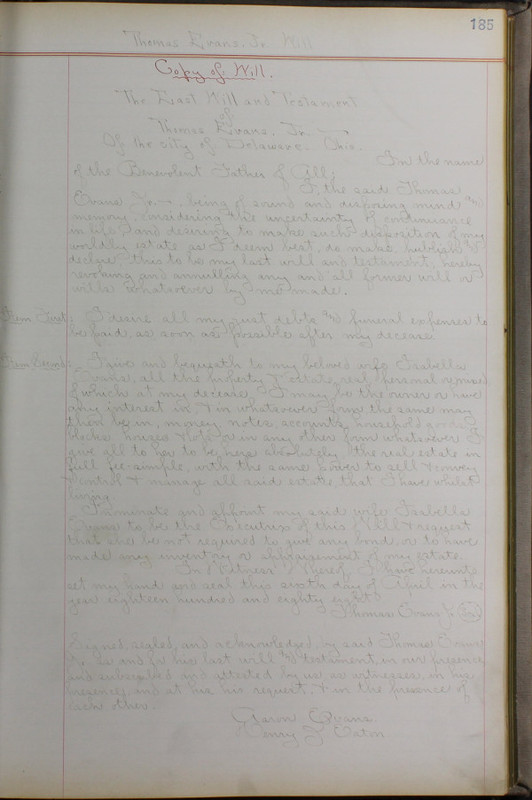 185
Thomas Evans. Jr. Will
Copy of Will.
The Last Will and Testament
of
Thomas Evans. Jr.
Of the city of Delaware. Ohio.
In the name
of the Benevolent Father of All;
I, the said Thomas
Evans Jr. being of sound and disposing mind and
memory, considering the uncertainty of continuance
in life, and desiring to make such disposition of my
worldly estate as I deem best, do make publish &
declare this to be my last will and testament, hereby
revoking and annulling any and all former will or
wills whatsoever by me made.
Item First: I desire all my just debts and funeral expenses to
be paid, as soon as possible after my decease
Item Second: I give and bequeath to my beloved wife Isabella
Evans, all the property & estate, real personal or mixed
of which at my decease, I may be the owner or have
any interest in & in whatsoever form the same may
then be in, money, notes, accounts, household goods,
blocks houses & lots or in any other form whatsoever I
give all to her to be hers absolutely, the real estate in
full fee-simple, with the same power to sell & convey
control & manage all said estate, that I have whilst
living.
I nominate and appoint my said wife Isabella
Evans to be the Executrix of this Will & request
that she be not required to give any bond, or to have
made any inventory or appraisement of my estate.
In Witness Whereof, I have hereunto
set my hand and seal this sixth day of April in the
year eighteen hundred and eighty eight.
Thomas Evans Jr.
Signed, sealed, and acknowledged by said Thomas Evans
Jr. as and for his last will and testament, in our presence
and subscribed and attested by us, as witnesses, in his
presence, and at his request, & in the presence of
each other.
Evans
Henry Eaton